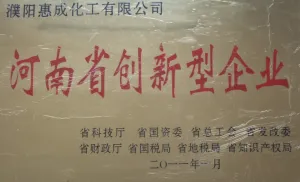 濮阳惠成化工有限公司
河南省创新型企业
省科技厅 省国资委 省总工会 省发改委
省财政厅 省国税局 省地税局 省知识产权局
二〇一一年一月